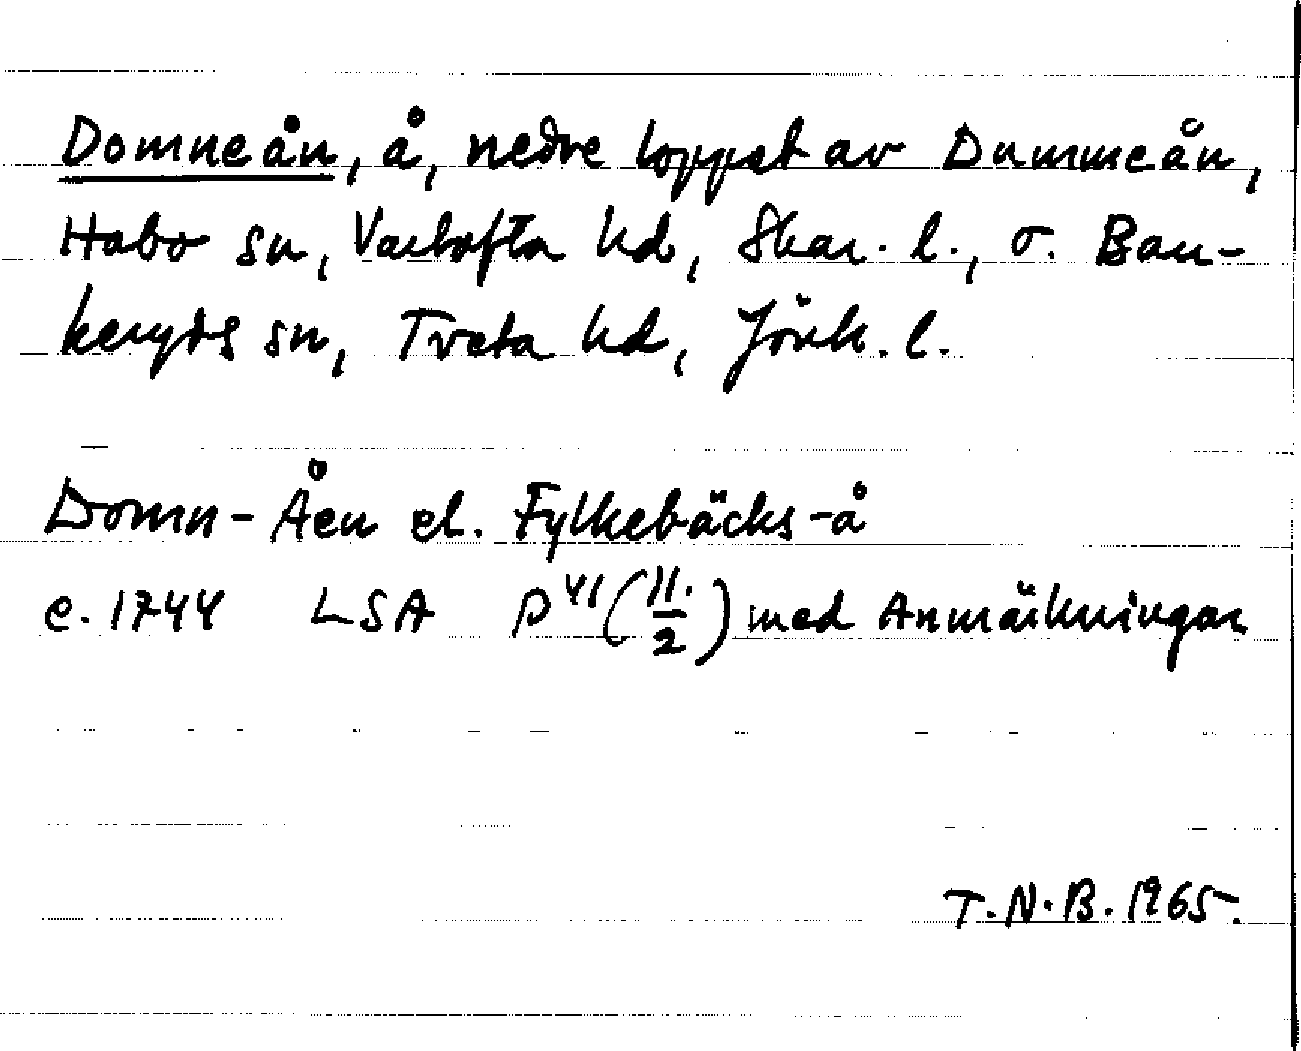 Domneån, å, nedre loppet av Dummeån,
Habo sn, Vartofta hd, Skar. l., o. Ban-
keryds sn, Tveta hd, Jönk. l.
Domn-Åen el. Fylkebäcks-å
c. 1744 LSA P⁴¹ (11./2) med Anmärkningar
T.N.B. 1965.